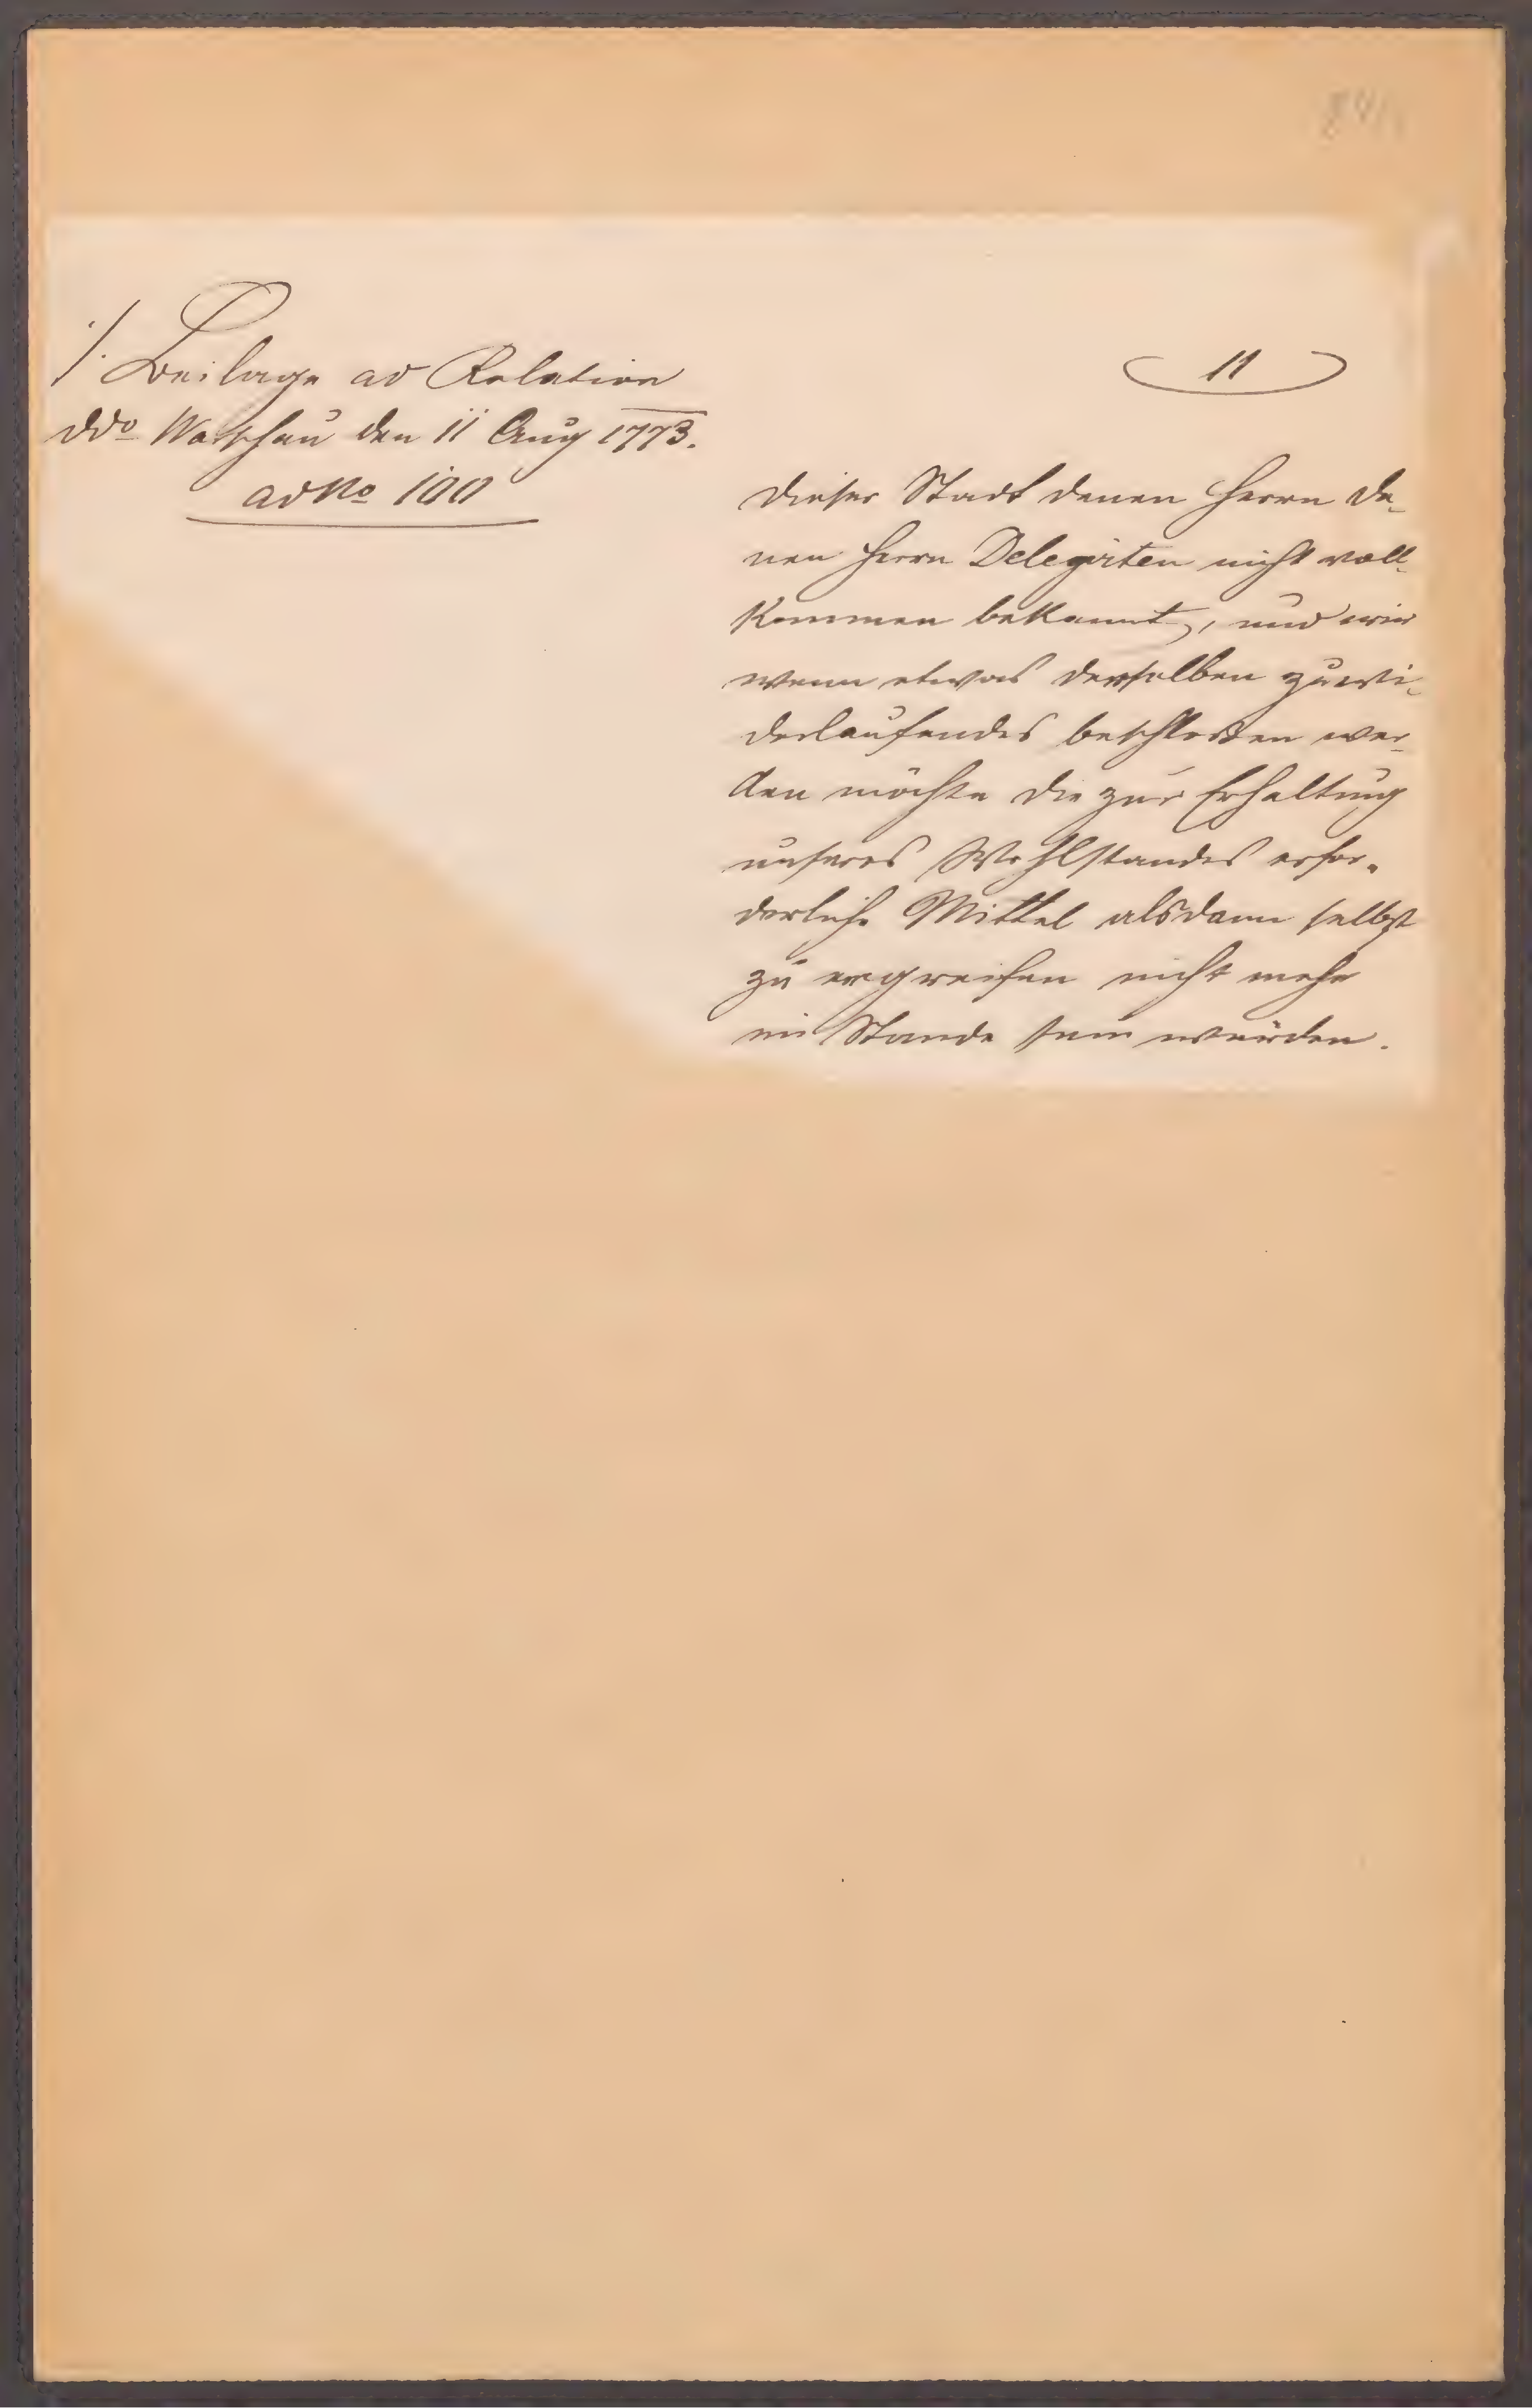 ·/. Beilage ad Relation
ddo Warschau den 11 Aug 1773.
ad No 100
11
dieser Stadt denen Herrn de-
nen Herrn Delegirten nicht voll-
kommen bekannt, und wir
wenn etwas derselben zuwi-
derlaufendes beschlossen wer-
den möchte die zur Erhaltung
unseres Wohlstandes erfor-
derliche Mittel alsdann selbst
zu ergreifen nicht mehr
im Stande sein würden.